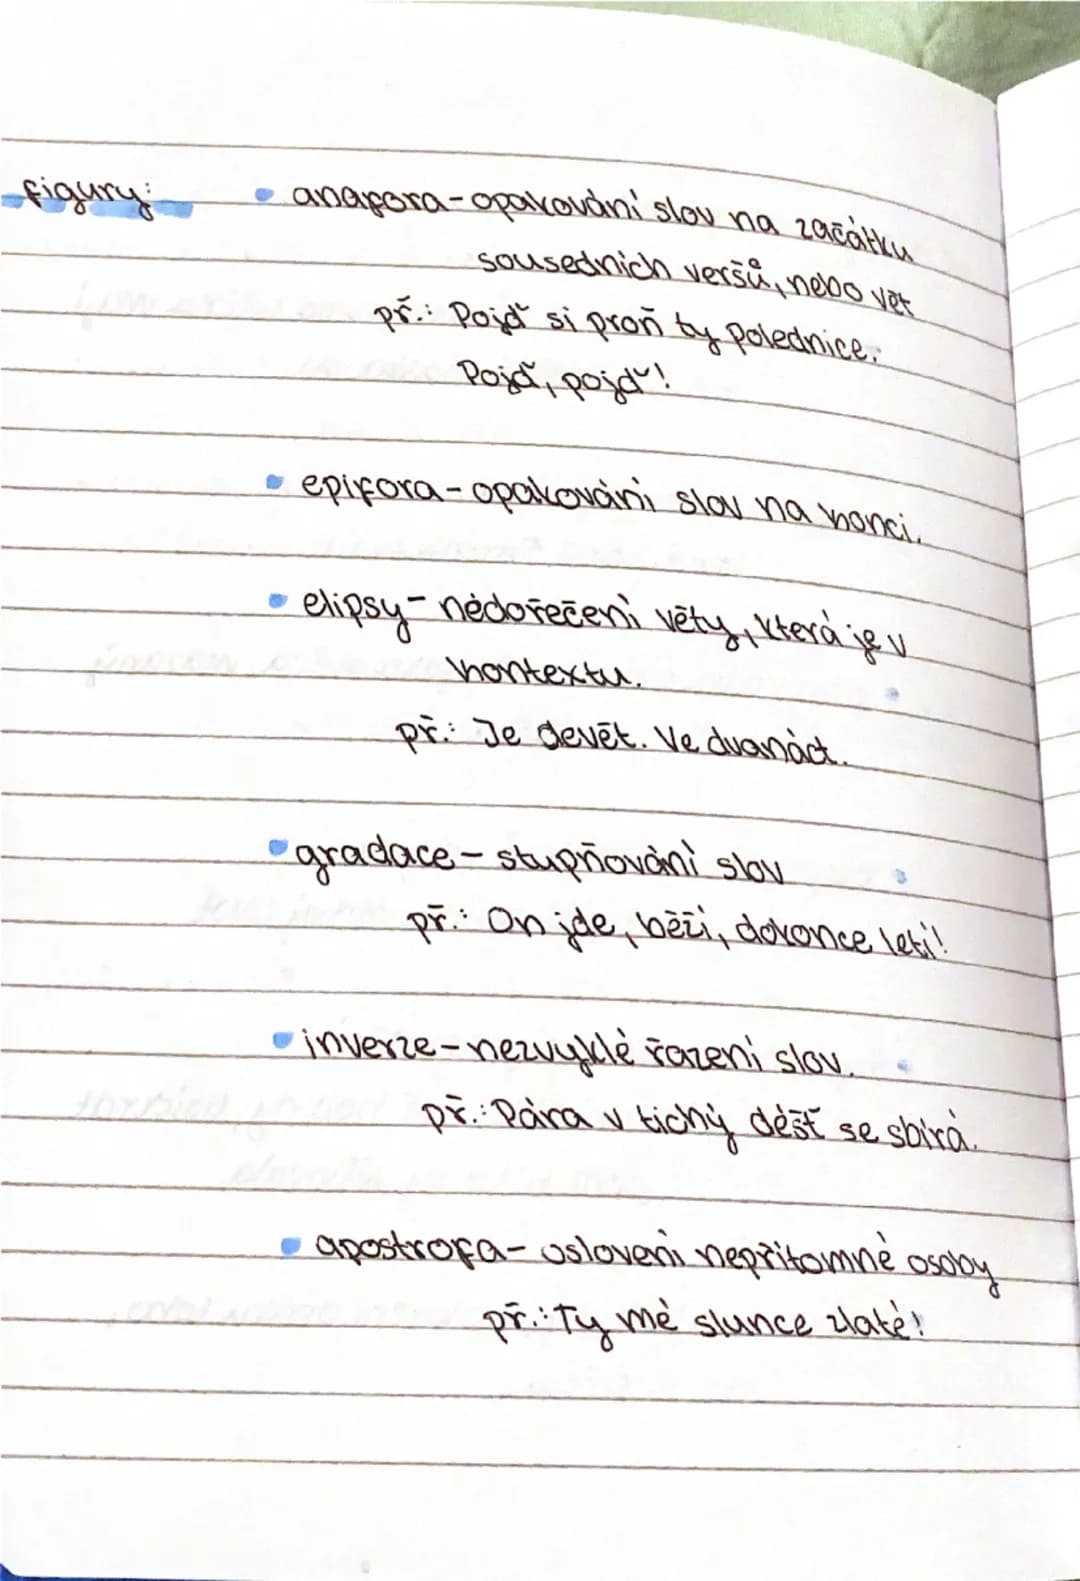 figury: • anafora - opakování slov na začátku
sousedních veršů, nebo vět
př.: Pojď si proň ty polednice.
Pojď, pojď!
• epifora - opakování slov na konci.
• elipsy - nedořečení věty, která je v
kontextu.
př.: Je devět. Ve dvanáct.
• gradace - stupňování slov
př.: On jde, běží, dokonce letí!
• inverze - nezvyklé řazení slov.
př.: Pára v tichý déšť se sbírá.
• apostrofa - oslovení nepřítomné osoby
př.: Ty mé slunce zlaté!